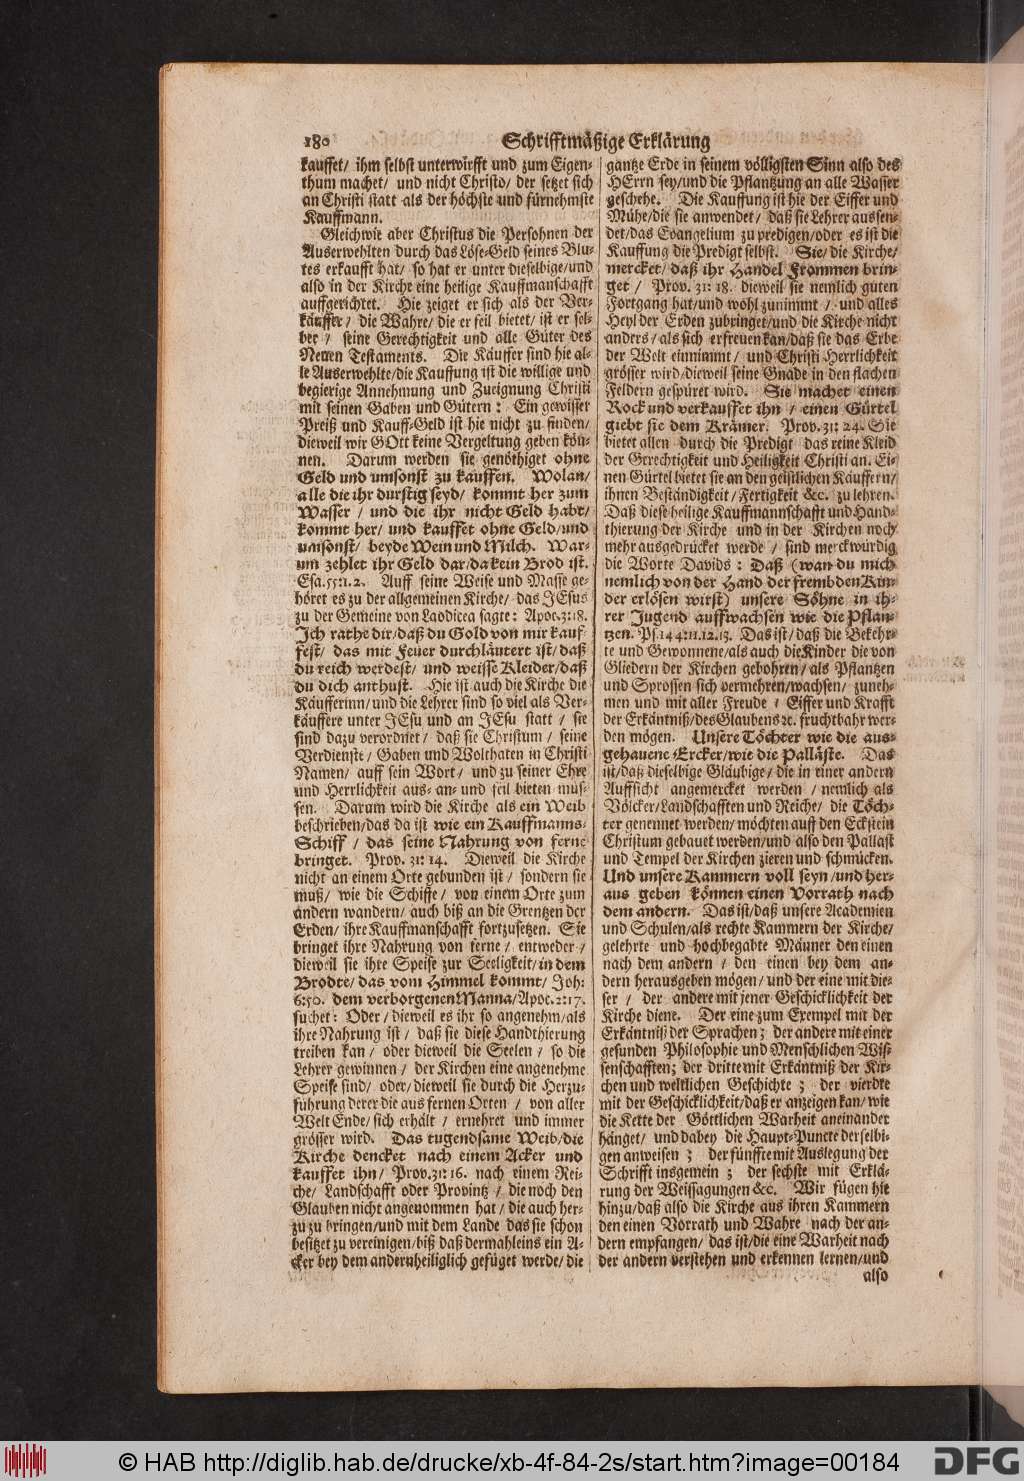 180 Schrifftmäßige Erklärung
kauffet/ ihm selbst unterwirfft und zum Eigen-
thum machet/ und nicht Christo/ der setzet sich
an Christi statt als der höchste und fürnehmste
Kauffmann.
Gleichwie aber Christus die Persohnen der
Auserwehlten durch das Löse-Geld seines Blu-
tes erkaufft hat/ so hat er unter dieselbige/und
also in der Kirche eine heilige Kauffmanschafft
auffgerichtet. Hie zeiget er sich als der Ver-
käuffer/ die Wahre/ die er feil bietet/ ist er sel-
ber / seine Gerechtigkeit und alle Güter des
Neuen Testaments. Die Käuffer sind hie al-
le Auserwehlte/die Kauffung ist die willige und
begierige Annehmung und Zueignung Christi
mit seinen Gaben und Gütern: Ein gewisser
Preiß und Kauff-Geld ist hie nicht zu finden/
dieweil wir GOtt keine Vergeltung geben kön-
nen. Darum werden sie genöthiget ohne
Geld und umsonst zu kauffen. Wolan/
alle die ihr durstig seyd/ kommt her zum
Wasser / und die ihr nicht Geld habt/
kommt her/ und kauffet ohne Geld/und
umsonst/ beyde Wein und Milch. War-
um zehlet ihr Geld dar/da kein Brod ist.
Esa. 55:1. 2. Auff seine Weise und Masse ge-
höret es zu der allgemeinen Kirche/ das JEsus
zu der Gemeine von Laodicea sagte: Apoc. 3:18.
Ich rathe dir/daß du Gold von mir kauf-
fest/ das mit Feuer durchläutert ist/daß
du reich werdest/ und weisse Kleider/daß
du dich anthust. Hie ist auch die Kirche die
Käufferinn/und die Lehrer sind so viel als Ver-
käuffere unter JEsu und an JEsu statt / sie
sind dazu verordnet / daß sie Christum / seine
Verdienste/ Gaben und Wolthaten in Christi
Namen/ auff sein Wort/ und zu seiner Ehre
und Herrlichkeit aus- an- und feil bieten müs-
sen. Darum wird die Kirche als ein Weib
beschrieben/das da ist wie ein Kauffmanns-
Schiff / das seine Nahrung von ferne
bringet. Prov. 31: 14. Dieweil die Kirche
nicht an einem Orte gebunden ist/ sondern sie
muß/ wie die Schiffe/ von einem Orte zum
andern wandern/ auch biß an die Grentzen der
Erden/ ihre Kauffmanschafft fortzusetzen. Sie
bringet ihre Nahrung von ferne/ entweder/
dieweil sie ihre Speise zur Seeligkeit/in dem
Brodte/ das vom Himmel kommt/ Joh:
6:50. dem verborgenen Manna/ Apoc. 2:17.
suchet: Oder / dieweil es ihr so angenehm/als
ihre Nahrung ist / daß sie diese Handthierung
treiben kan/ oder dieweil die Seelen/ so die
Lehrer gewinnen/ der Kirchen eine angenehme
Speise sind/ oder/dieweil sie durch die Herzu-
führung derer die aus fernen Orten / von aller
Welt Ende/sich erhält / ernehret und immer
grösser wird. Das tugendsame Weib/die
Kirche dencket nach einem Acker und
kauffet ihn/ Prov. 31: 16. nach einem Rei-
che/ Landschafft oder Provintz / die noch den
Glauben nicht angenommen hat / die auch her-
zu zu bringen/und mit dem Lande das sie schon
besitzet zu vereinigen/biß daß dermahleins ein A-
cker bey dem andern heiliglich gefüget werde/ die
gantze Erde in seinem völligsten Sinn also des
HErrn sey/und die Pflantzung an alle Wasser
geschehe. Die Kauffung ist hie der Eiffer und
Mühe/die sie anwendet/ daß sie Lehrer aussen-
det/das Evangelium zu predigen/oder es ist die
Kauffung die Predigt selbst. Sie/ die Kirche/
mercket/ daß ihr Handel Frommen brin-
get / Prov. 31: 18. dieweil sie nemlich guten
Fortgang hat/und wohl zunimmt / und alles
Heyl der Erden zubringet/und die Kirche nicht
anders/ als sich erfreuen kan/daß sie das Erbe
der Welt einnimmt/ und Christi Herrlichkeit
grösser wird/dieweil seine Gnade in den flachen
Feldern gespüret wird. Sie machet einen
Rock und verkauffet ihn / einen Gürtel
giebt sie dem Krämer. Prov. 31: 24. Sie
bietet allen durch die Predigt das reine Kleid
der Gerechtigkeit und Heiligkeit Christi an. Ei-
nen Gürtel bietet sie an den geistlichen Käuffern/
ihnen Beständigkeit/ Fertigkeit &c. zu lehren.
Daß diese heilige Kauffmannschafft und Hand-
thierung der Kirche und in der Kirchen noch
mehr ausgedrücket werde / sind merckwürdig
die Worte Davids: Daß (wan du mich
nemlich von der Hand der frembden Kin-
der erlösen wirst) unsere Söhne in ih-
rer Jugend auffwachsen wie die Pflan-
tzen. Ps. 144:11.12.13. Das ist/ daß die Bekehr-
te und Gewonnene/als auch die Kinder die von
Gliedern der Kirchen gebohren/ als Pflantzen
und Sprossen sich vermehren/wachsen/ zuneh-
men und mit aller Freude / Eiffer und Krafft
der Erkäntniß/des Glaubens &c. fruchtbahr wer-
den mögen. Unsere Töchter wie die aus-
gehauene Ercker/wie die Palläste. Das
ist/daß dieselbige Gläubige/ die in einer andern
Auffsicht angemercket werden / nemlich als
Völcker/Landschafften und Reiche/ die Töch-
ter genennet werden/ möchten auff den Eckstein
Christum gebauet werden/und also den Pallast
und Tempel der Kirchen zieren und schmücken.
Und unsere Kammern voll seyn/und her-
aus geben können einen Vorrath nach
dem andern. Das ist/daß unsere Academien
und Schulen/als rechte Kammern der Kirche/
gelehrte und hochbegabte Männer den einen
nach dem andern / den einen bey dem an-
dern herausgeben mögen/ und der eine mit die-
ser / der andere mit jener Geschicklichkeit der
Kirche diene. Der eine zum Exempel mit der
Erkäntniß der Sprachen; der andere mit einer
gesunden Philosophie und Menschlichen Wis-
senschafften; der dritte mit Erkäntniß der Kir-
chen und weltlichen Geschichte; der vierdte
mit der Geschicklichkeit/daß er anzeigen kan/ wie
die Kette der Göttlichen Warheit aneinander
hänget/ und dabey die Haupt-Puncte derselbi-
gen anweisen; der fünffte mit Auslegung der
Schrifft insgemein; der sechste mit Erklä-
rung der Weissagungen &c. Wir fügen hie
hinzu/daß also die Kirche aus ihren Kammern
den einen Vorrath und Wahre nach der an-
dern empfangen/ das ist/die eine Warheit nach
der andern verstehen und erkennen lernen/und
also
© HAB http://diglib.hab.de/drucke/xb-4f-84-2s/start.htm?image=00184
DFG